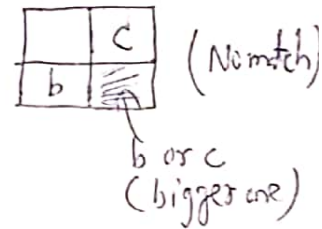 c
(No mtch)
b
b or c
(bigger one)